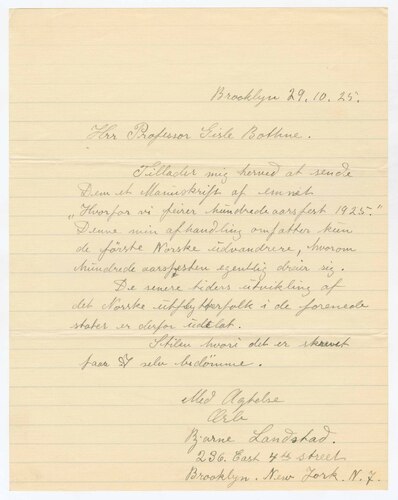 Brooklyn 29.10.25.
Hrr Professor Gisle Bothne.
Tillader mig herved at sende
Dem et Manuskrift af emnet
„Hvorfor vi feirer hundredeaarsfest 1925."
Denne min afhandling omfatter kun
de förste Norske udvandrere, hvorom
hundrede aarsfesten egentlig dreier sig.
De senere tiders utvikling af
det Norske utflytterfolk i de forenede
stater er derfor udelat.
Stilen hvori det er skrevet
faar I selv bedömme.
Med Agtelse
Ærb
Bjarne Landstad.
236. East 4th street
Brooklyn. New York. N.J.